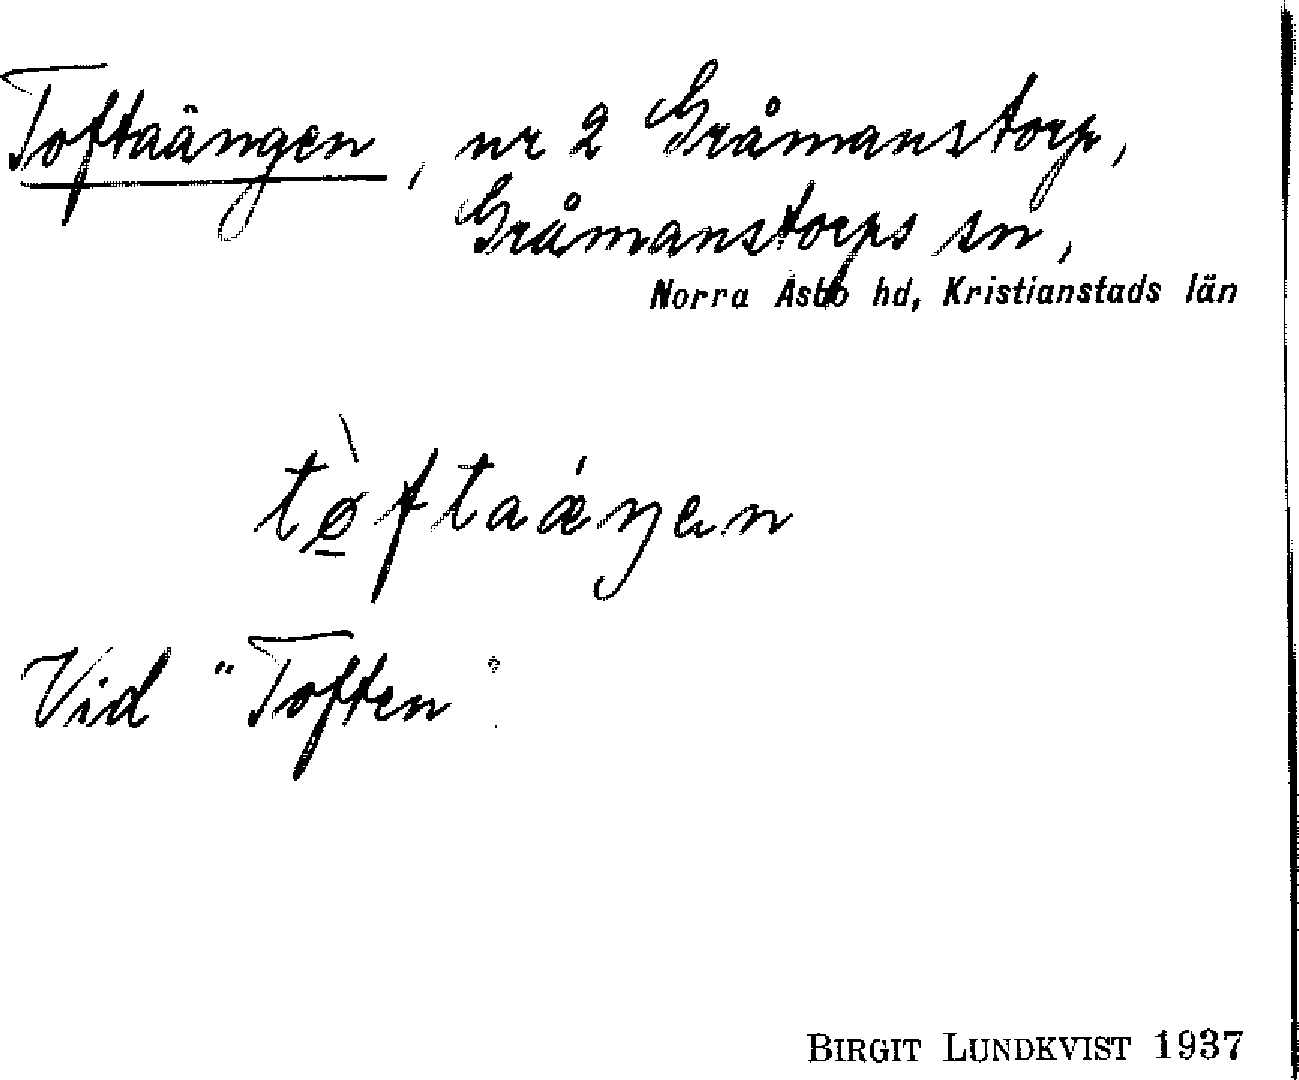 Toftaängen, nr 2 Gråmanstorp,
Gråmanstorps sn,
Norra Åsbo hd, Kristianstads län
tø̠̀ftaáŋen
Vid "Toften".
BIRGIT LUNDKVIST 1937